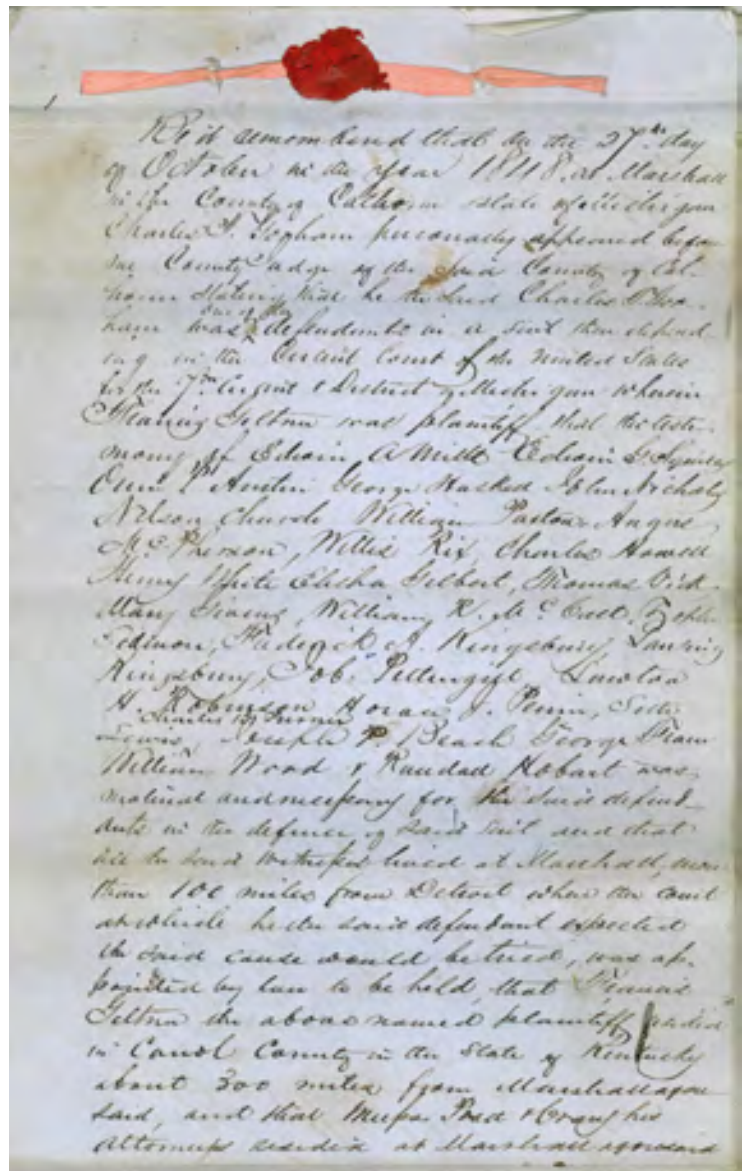 Be it remembered that on the 27th day
of October in the year 1848. at Marshall
in the County of Calhoun State of Michigan
Charles T. Gorham personally appeared before
me County Judge of the said County of Cal-
houn stating that he the said Charles T. Gor-
ham was one of the defendants in a suit then depend-
ing in the Circuit Court of the United States
for the 7th Circuit & District of Michigan wherein
Francis Giltner was plaintiff, that the testi-
mony of Edwin A Mills Edwin G. Squires
Austin George Haskell John Nichols
Nelson Church William Paxton Angus
McPherson, Willis Rix, Charles Howell
Henry White Elisha Gilbert, Thomas Dick
Mary Graves, William R. McCall,
Frederick A. Kingsbury Lansing
Kingsbury, Job. Pettengill, Lawton
H. Robinson Horace J. Perrin, Seth
Charles B. Turner
Lewis, Joseph P. Beach George
William Wood & Randall Hobart was
material and necessary for the said defend-
ants in the defence of said suit and that
all the said witnesses lived at Marshall, more
than 100 miles from Detroit where the court
at which he the said defendant expected
the said cause would be tried, was ap-
pointed by law to be held, that Francis
Giltner the above named plaintiff resided
in Carroll County in the State of Kentucky
about 300 miles from Marshall afore
said, and that Messrs Pratt & Crary his
Attorneys resided at Marshall aforesaid